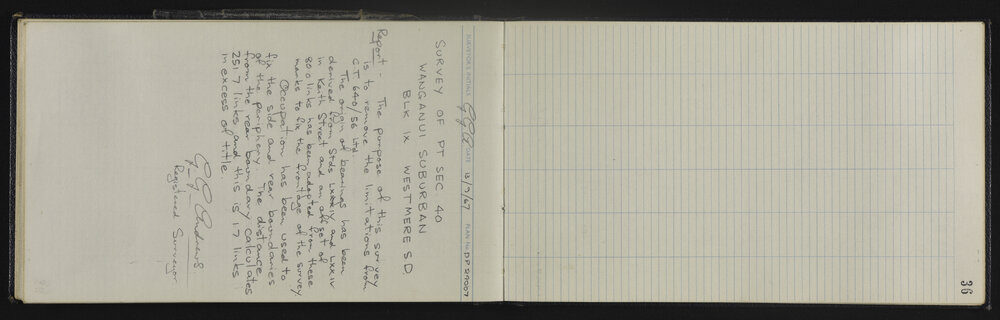 SURVEYOR'S INITIALS GGA DATE 13/7/67 PLAN No. DP 29007
SURVEY OF PT SEC 40
WANGANUI SUBURBAN
BLK IX WESTMERE SD
Report - The purpose of this survey
is to remove the limitations from
CT 640/56 Ltd.
The origin of bearings has been
derived from Stds LXXXIV and LXXIV
in Keith Street and an offset of
80.0 links has been adopted from these
marks to fix the frontage of the survey
Occupation has been used to
fix the side and rear boundaries
of the periphery. The distance
from the rear boundary calculates
251.7 links and this is 1.7 links
in excess of title.
G G Andrews
Registered Surveyor
36